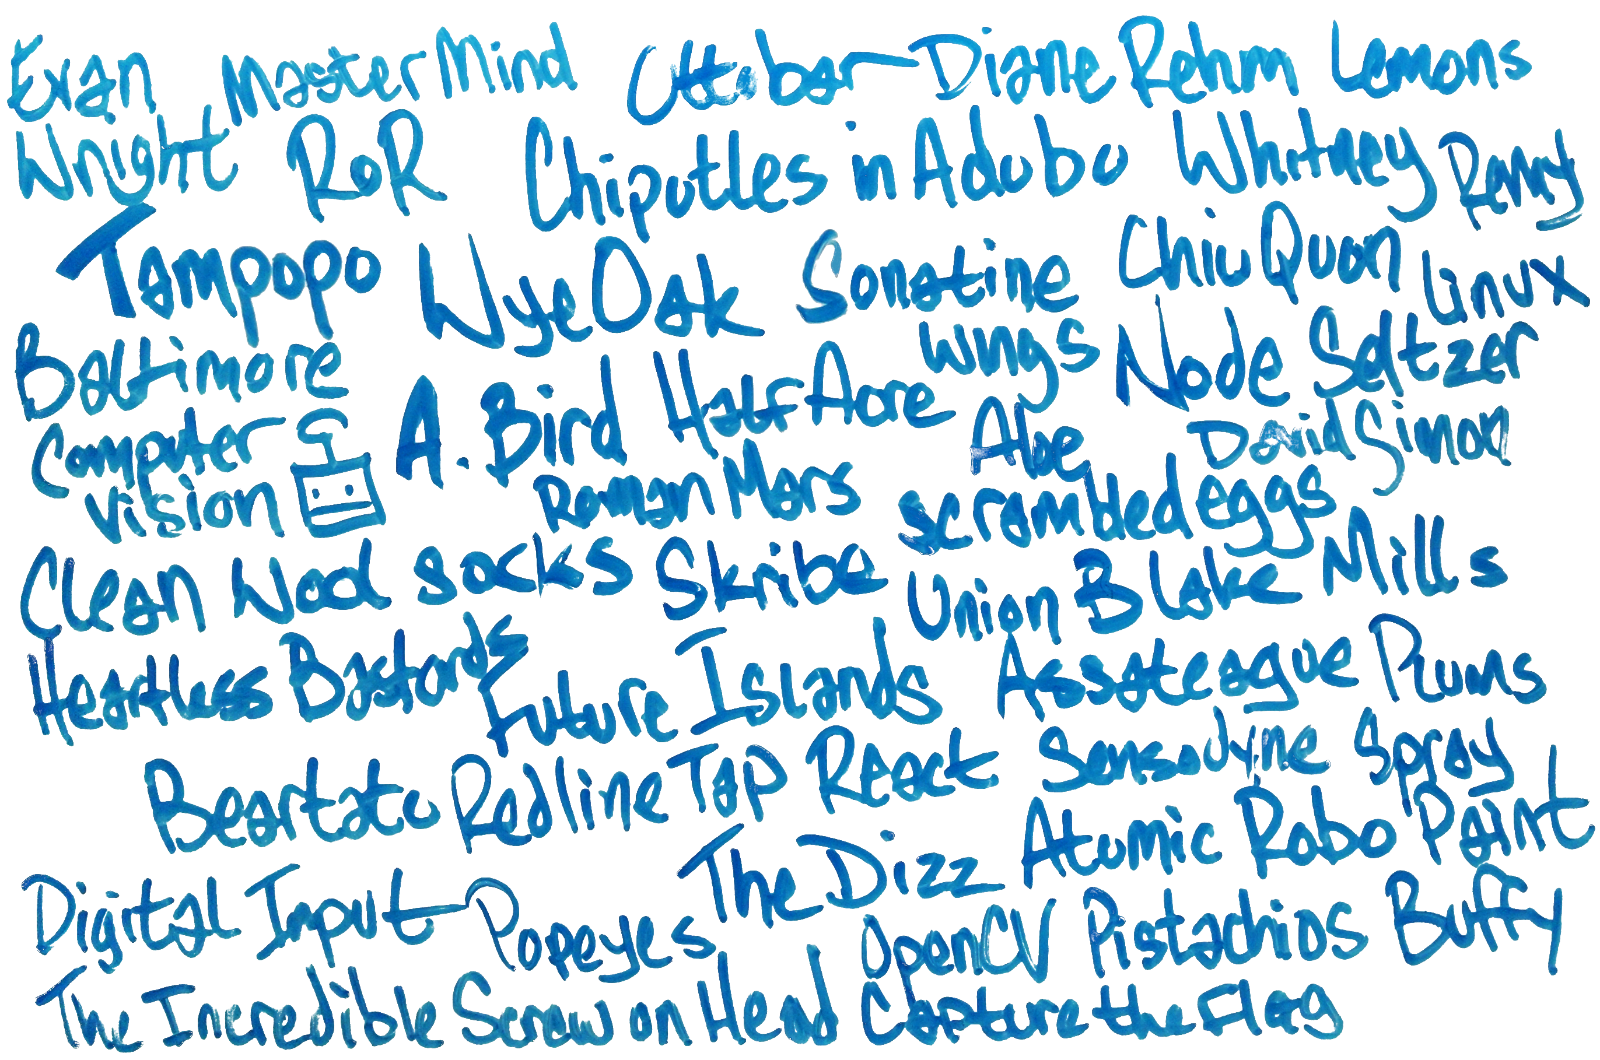 Evan MasterMind Ottobar Diane Rehm Lemons
Wright RoR Chipotles in Adobo Whitney Remy
Tampopo Wye Oak Sonatine Chiu Quon Linux
Baltimore A. Bird Half Acre Wings Node Seltzer
Computer Vision Roman Mars Abe David Simon
scrambled eggs
Clean Wool Socks Skribe Union Blake Mills
Heartless Bastards Future Islands Assateague Plums
Beartato Redline Tap React Sensodyne Spray Paint
The Dizz Atomic Robo
Digital Input Popeyes OpenCV Pistachios Buffy
The Incredible Screw on Head Capture the Flag